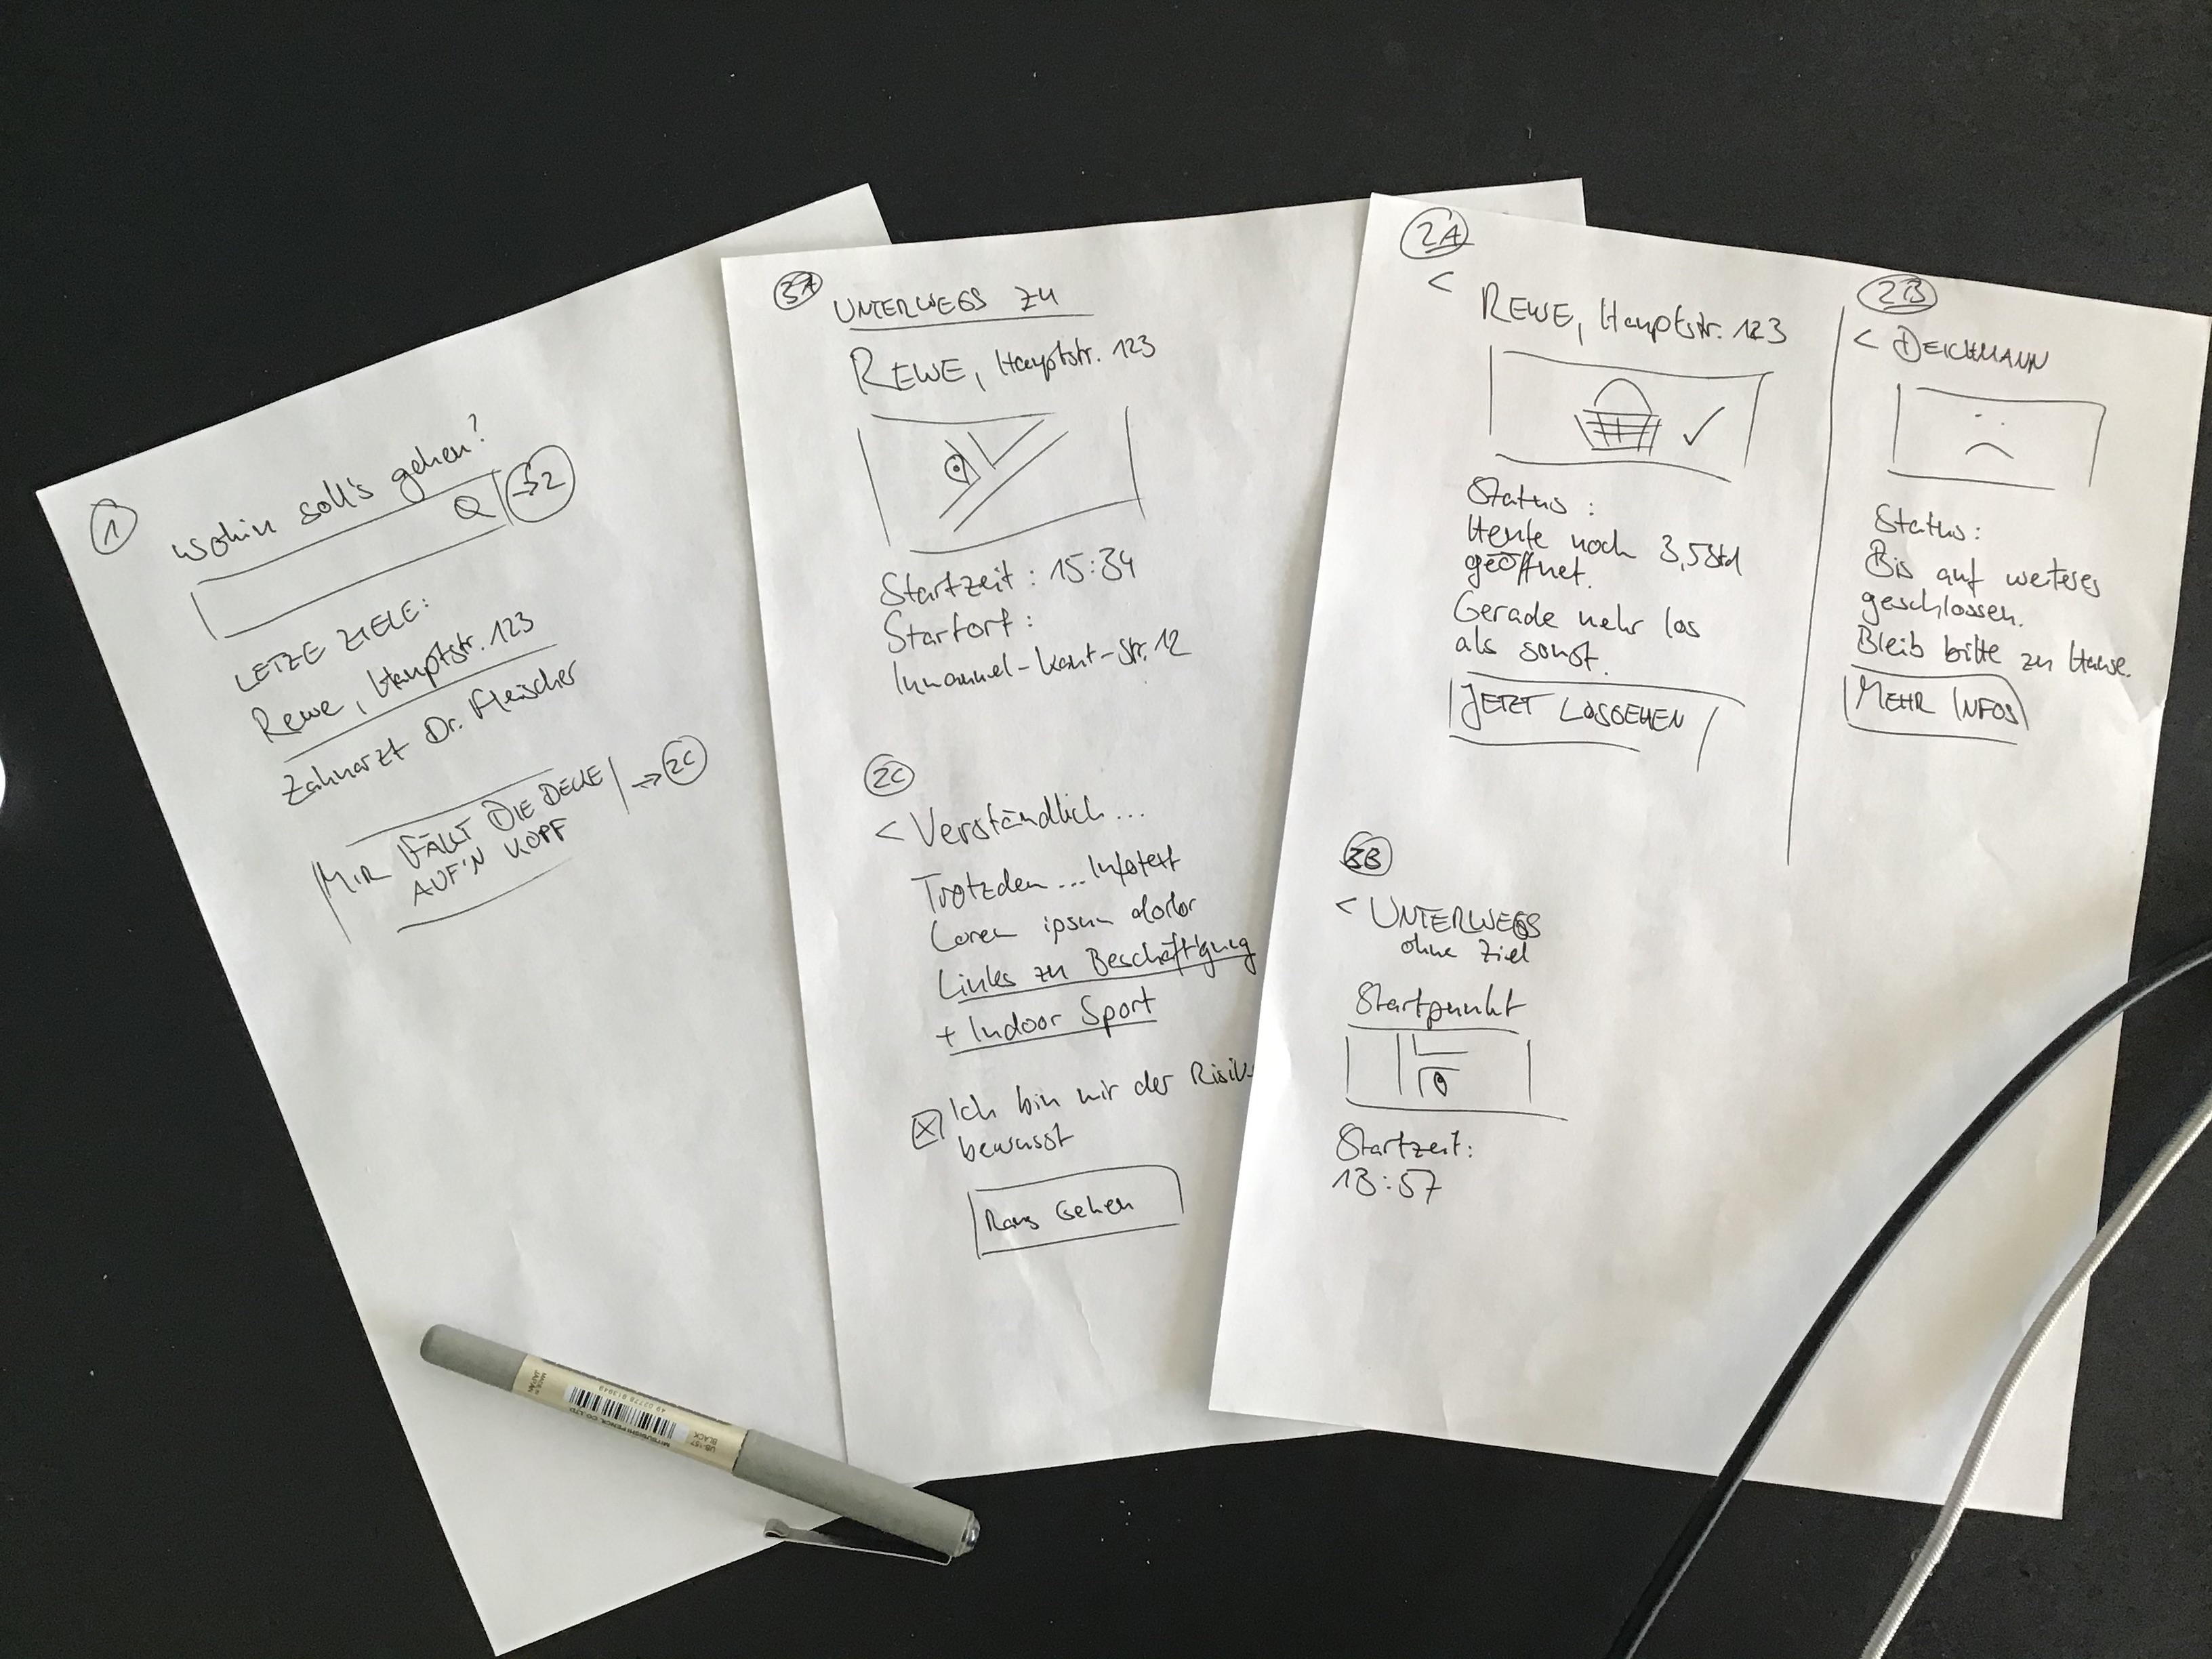 1
Wohin soll's gehen?
→2
LETZE ZIELE:
Rewe, Hauptstr. 123
Zahnarzt Dr. Fleischer
MIR FÄLLT DIE DECKE
AUF'N KOPF
→ 2C
3A
UNTERWEGS ZU
REWE, Hauptstr. 123
Startzeit: 15:34
Startort:
Immanuel-Kant-Str. 12
2C
< Verständlich...
Trotzdem ... Infotext
Lorem ipsum dolor
Links zu Beschäftigung
+ Indoor Sport
Ich bin mir der
bewusst
Raus Gehen
2A
<
REWE, Hauptstr. 123
Status:
Heute noch 3,5 Std
geöffnet.
Gerade mehr los
als sonst.
JETZT LOSGEHEN
2B
< DEICHMANN
Status:
Bis auf weiteres
geschlossen.
Bleib bitte zu Hause.
MEHR INFOS
3B
< UNTERWEGS
ohne Ziel
Startpunkt
Startzeit:
13:57
MADE IN
JAPAN
MITSUBISHI PENCIL CO. LTD
UB-157
BLACK